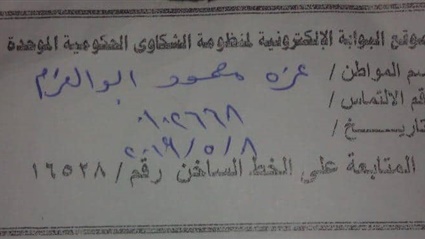 موقع البوابة الالكترونية لمنظومة الشكاوى الحكومية الموحدة
سم المواطن / عزه محمود ابوالعزم
قم الالتماس / ٠١٠٢٦٦٨
تاريـــــخ / ٢٠١٩/٥/٨
المتابعة على الخط الساخن رقم / ١٦٥٢٨